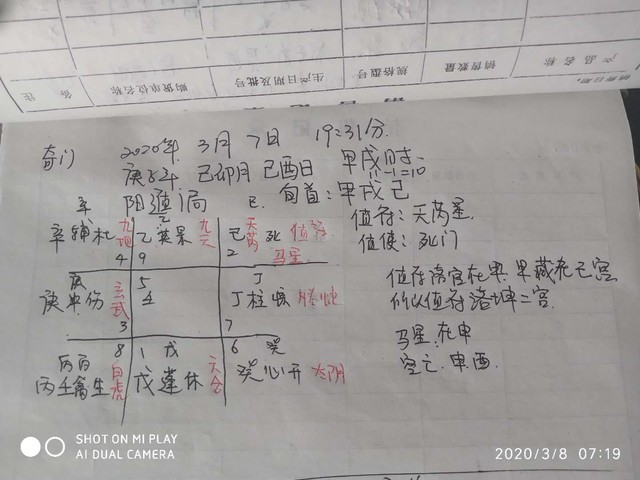 备注
购货单位名称
生产日期及批号
规格型号
销售数量
产品名称
奇门 2020年 3月 7日 19:31分
庚子年 己卯月 己酉日 甲戌时
11-1=10
阳遁1局 旬首:甲戌己
值符:天芮星
值使:死门
辛
辛辅杜 九地
4
乙
乙英景 九天
9
己
己 天芮 死 值符
马星
2
庚
庚冲伤 玄武
3
5
壬
丁
丁柱惊 螣蛇
7
8
丙
丙壬禽生 白虎
1 戊
戊蓬休 六合
6 癸
癸心开 太阴
值符落宫在坤
所以值符落坤二宫
马星:在申
空亡:申酉
SHOT ON MI PLAY
AI DUAL CAMERA
2020/3/8 07:19